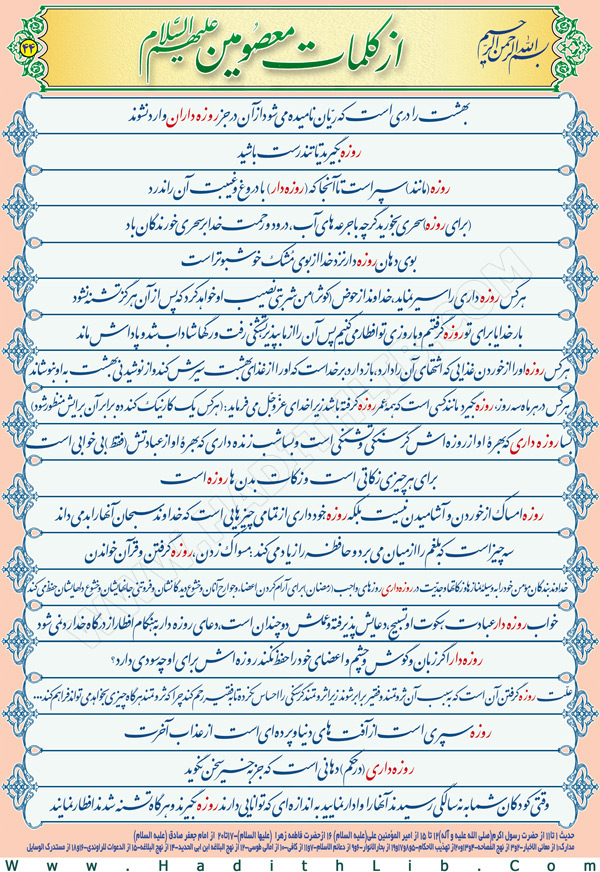 بسم الله الرحمن الرحیم
از کلمات معصومین علیهم السلام
۴۴
بهشت را دری است که ریّان نامیده می شود از آن در جز روزه داران وارد نشوند
روزه بگیرید تا تندرست باشید
روزه (مانند) سپر است تا آنجا که (روزه دار) با دروغ و غیبت آن را ندرد
(برای روزه) سحری بخورید گرچه با جرعه های آب، درود و رحمت خدا بر سحری خورندگان باد
بوی دهان روزه دار نزد خدا از بوی مُشک خوشبوتر است
هرکس روزه داری را سیر نماید، خداوند از حوض (کوثر) من شربتی نصیب او خواهد کرد که پس از آن هرگز تشنه نشود
بار خدایا برای تو روزه گرفتیم و با روزی تو افطار می کنیم پس آن را از ما بپذیر تشنگی رفت و رگها شاداب شد و پاداش ماند
هرکس روزه او را از خوردن غذایی که اشتهای آن را دارد، باز دارد بر خداست که او را از غذای بهشت سیرش کند و از نوشیدنی بهشت به او بنوشاند
هرکس در هر ماه سه روز، روزه بگیرد مانند کسی است که همه عمر روزه گرفته باشد زیرا خدای عزّوجل می فرماید: (هرکس یک کار نیک کند ده برابر آن برایش منظور شود)
بسا روزه داری که بهرهٔ او از روزه اش گرسنگی و تشنگی است و بسا شب زنده داری که بهرهٔ او از عبادتش (فقط) بی خوابی است
برای هر چیزی زکاتی است و زکات بدن ها روزه است
روزه امساک از خوردن و آشامیدن نیست بلکه روزه خودداری از تمامی چیزهایی است که خداوند سبحان آنها را بد می داند
سه چیز است که بلغم را از میان می برد و حافظه را زیاد می کند: مسواک زدن، روزه گرفتن و قرآن خواندن
خداوند بندگان مؤمن خود را به وسیله نمازها و زکاتها و جدّیت در روزه داری روزهای واجب (رمضان) برای آرام کردن اعضاء و جوارح آنان و خشوع دیدگانشان و فروتنی جانهایشان و خضوع دلهایشان حفظ می کند
خواب روزه دار عبادت، سکوت او تسبیح، دعایش پذیرفته و عملش دو چندان است، دعای روزه دار به هنگام افطار از درگاه خدا رد نمی شود
روزه دار اگر زبان و گوش و چشم و اعضای خود را حفظ نکند روزه اش برای او چه سودی دارد؟
علت روزه گرفتن آن است که به سبب آن ثروتمند و فقیر برابر شوند زیرا ثروتمند گرسنگی را احساس نکرده تا به فقیر رحم کند چرا که ثروتمند هرگاه چیزی بخواهد می تواند فراهم کند...
روزه سپری است از آفت های دنیا و پرده ای است از عذاب آخرت
روزه داری (در حکم) دهانی است که جز به خیر سخن نگوید
وقتی کودکان شما به نه سالگی رسیدند آنها را وادار نمایید به اندازه ای که توانایی دارند روزه بگیرند و هرگاه تشنه شدند افطار نمایند
حدیث ۱ تا ۱۱ از حضرت رسول اکرم (صلی الله علیه و آله) ۱۲ تا ۱۵ از امیر المؤمنین علی (علیه السلام) ۱۶ از حضرت فاطمه زهرا (علیها السلام) -۱۷ تا ۲۰ از امام جعفر صادق (علیه السلام)
www.HadithLib.Com